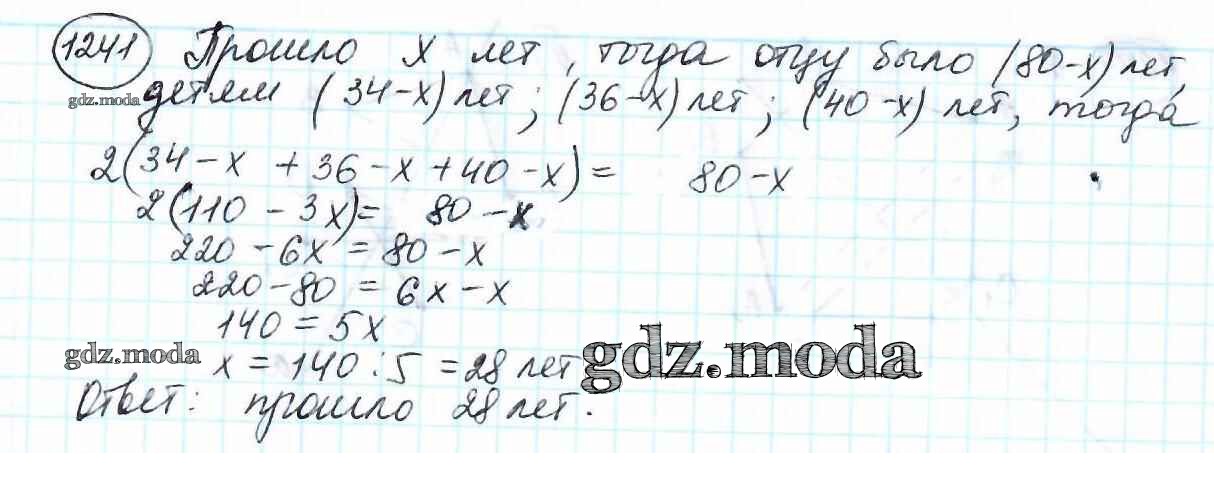 1241 Прошло x лет, тогда отцу было (80-x) лет,
gdz.moda детям (34-x) лет; (36-x) лет; (40-x) лет, тогда
2(34-x+36-x+40-x)= 80-x
2(110-3x)= 80-x
220-6x=80-x
220-80=6x-x
140=5x
gdz.moda x=140:5=28 лет gdz.moda
Ответ: прошло 28 лет.